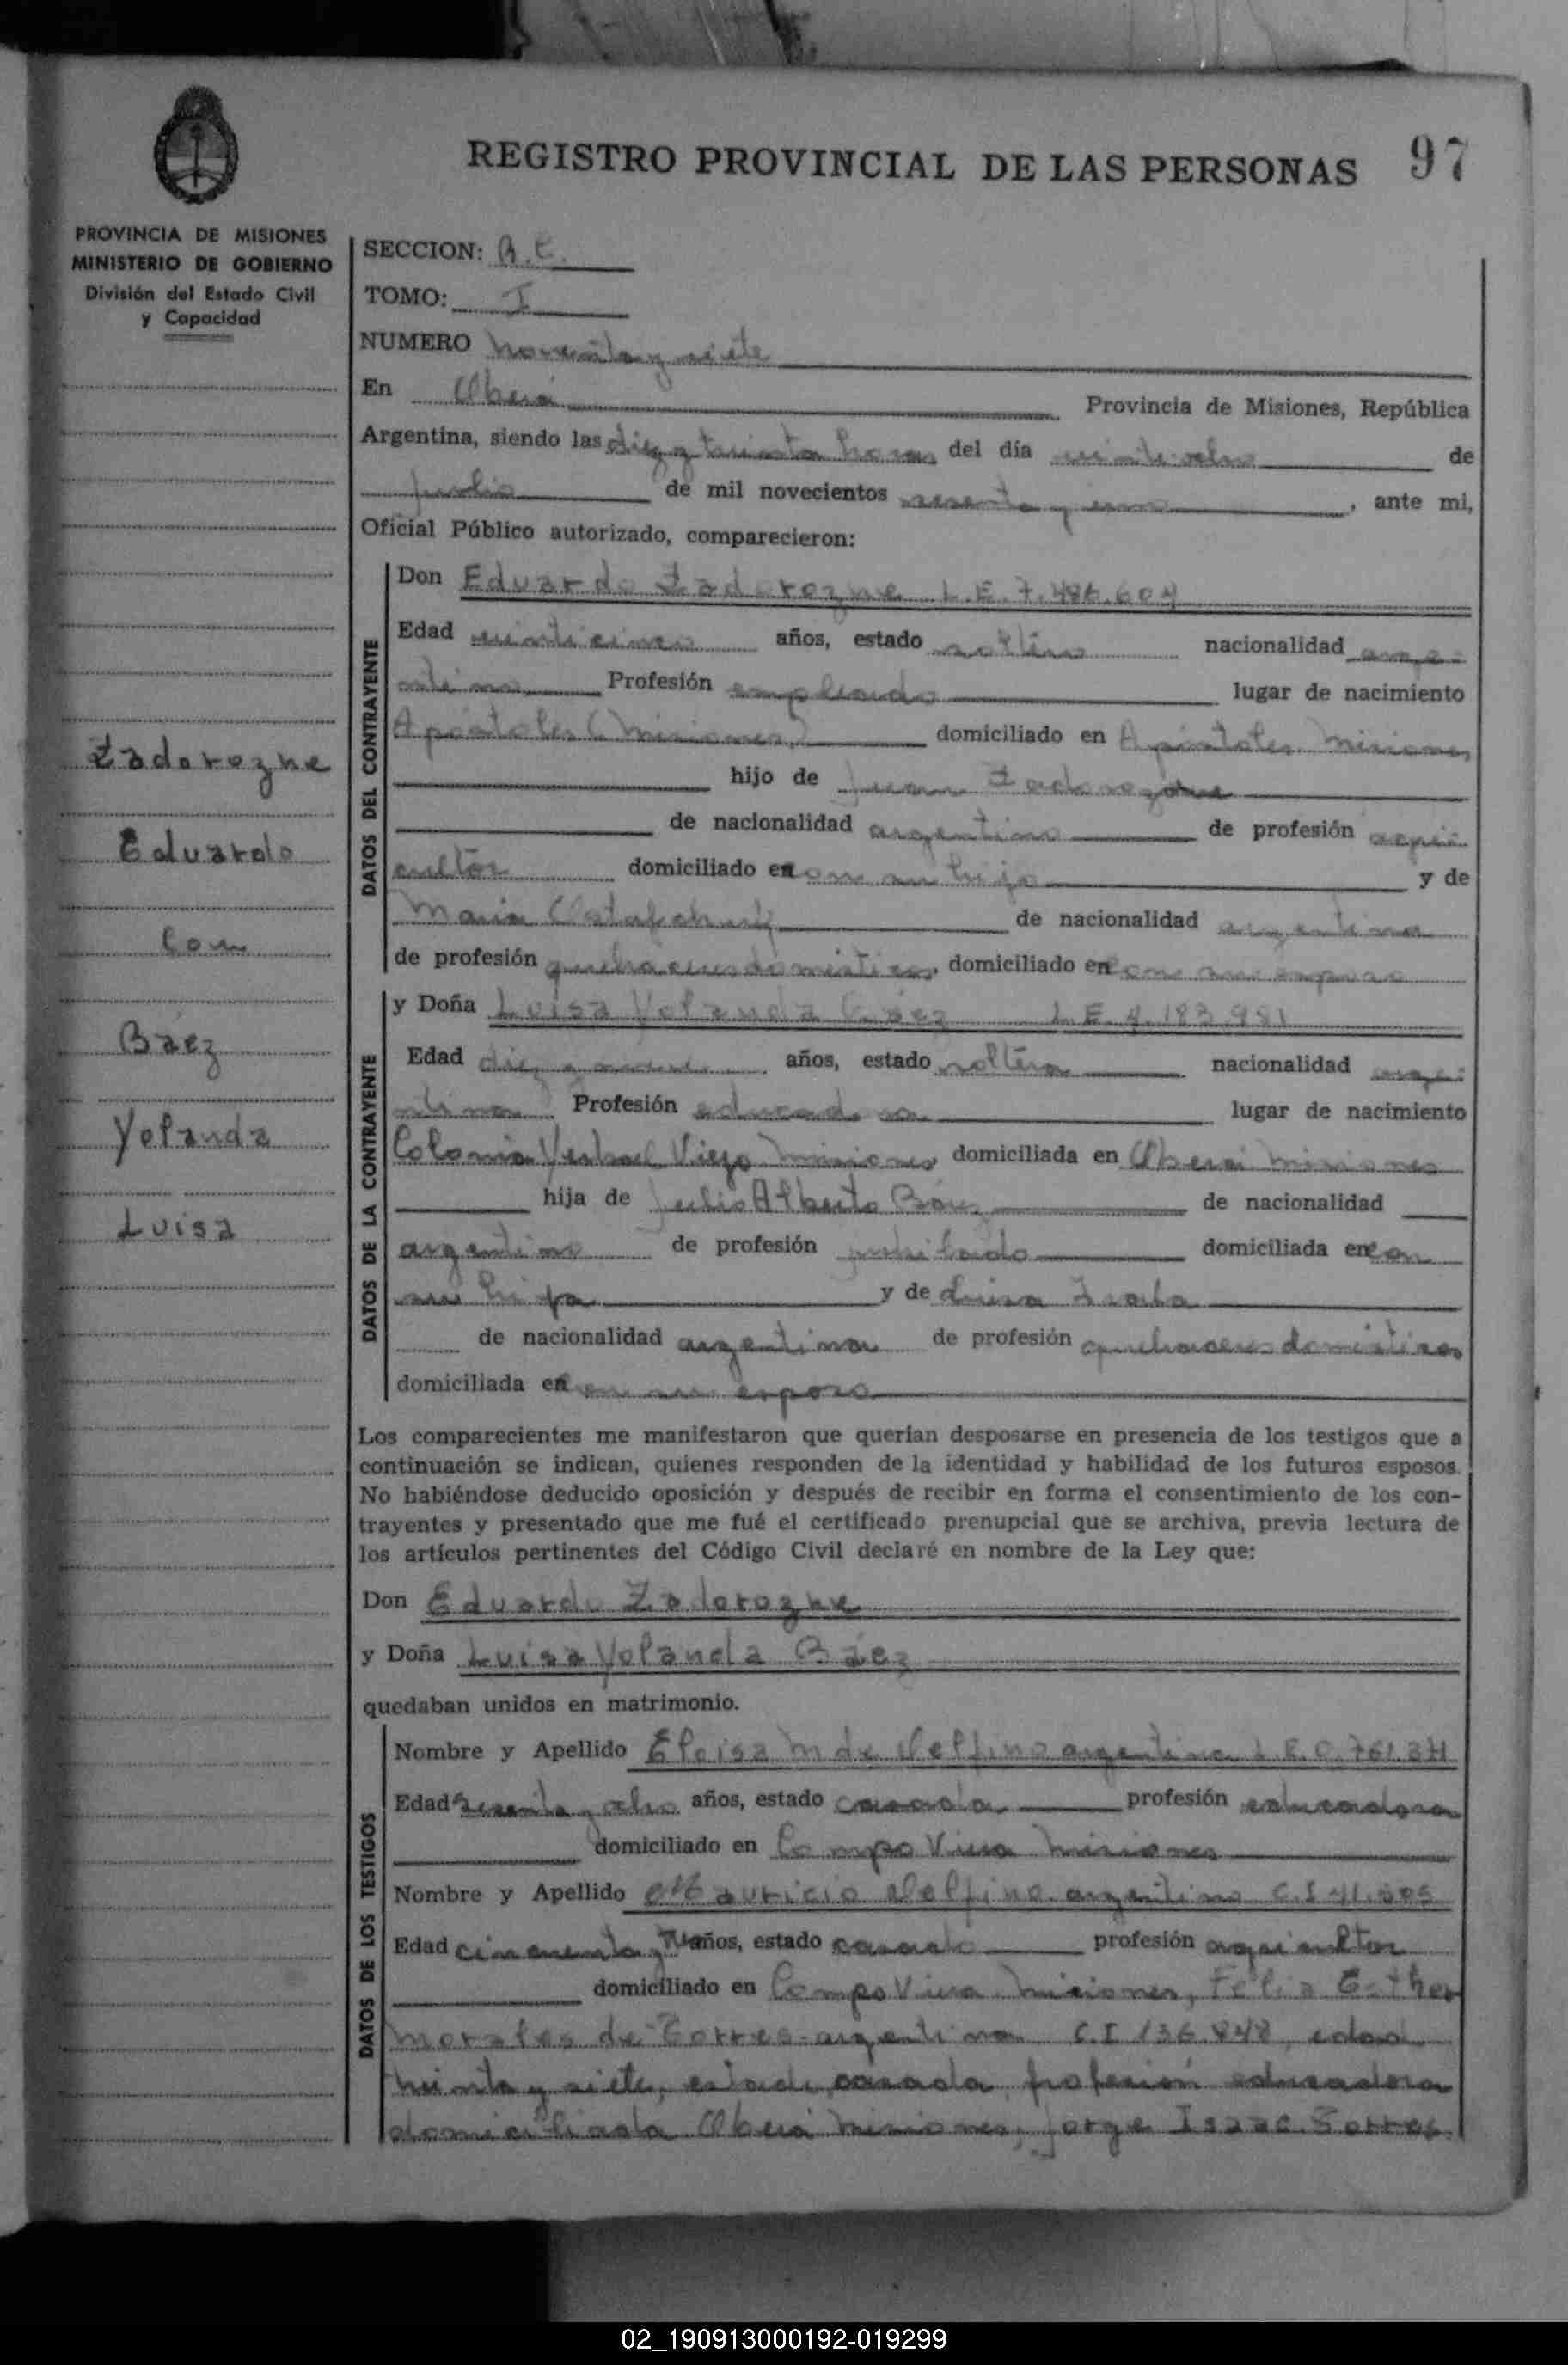 REGISTRO PROVINCIAL DE LAS PERSONAS 97
PROVINCIA DE MISIONES
MINISTERIO DE GOBIERNO
División del Estado Civil
y Capacidad
Zadorozne
Eduardo
Con
Báez
Yolanda
Luisa
SECCION:
TOMO: I
NUMERO noventa y siete
En Oberá Provincia de Misiones, República
Argentina, siendo las diez y treinta horas del día veintiocho de
Julio de mil novecientos sesenta y uno, ante mi,
Oficial Público autorizado, comparecieron:
DATOS DEL CONTRAYENTE
Don Eduardo Zadorozne L.E. 7.486.604
Edad veinticinco años, estado soltero nacionalidad arge-
ntino Profesión empleado lugar de nacimiento
Apóstoles (Misiones) domiciliado en Apóstoles Misiones
hijo de Juan Zadorozne
de nacionalidad argentino de profesión agri-
cultor domiciliado en con su hijo y de
Maria de nacionalidad argentina
de profesión quehaceres domésticos, domiciliado en con su esposo
DATOS DE LA CONTRAYENTE
y Doña Luisa Yolanda Báez L.E. 4.183.981
Edad diez y nueve años, estado soltera nacionalidad arge-
ntina Profesión educadora lugar de nacimiento
Colonia Yerbal Viejo Misiones domiciliada en Oberá Misiones
hija de Julio Alberto Báez de nacionalidad
argentino de profesión jubilado domiciliada en con
su hija y de Luisa
de nacionalidad argentina de profesión quehaceres domésticos
domiciliada en con su esposo
Los comparecientes me manifestaron que querían desposarse en presencia de los testigos que a
continuación se indican, quienes responden de la identidad y habilidad de los futuros esposos.
No habiéndose deducido oposición y después de recibir en forma el consentimiento de los con-
trayentes y presentado que me fué el certificado prenupcial que se archiva, previa lectura de
los artículos pertinentes del Código Civil declaré en nombre de la Ley que:
Don Eduardo Zadorozne
y Doña Luisa Yolanda Báez
quedaban unidos en matrimonio.
DATOS DE LOS TESTIGOS
Nombre y Apellido Eloisa M de Delfino argentina
Edad sesenta y ocho años, estado casada profesión educadora
domiciliado en Campo Viera Misiones
Nombre y Apellido Mauricio Delfino argentino C.I 41.505
Edad cincuenta y años, estado casado profesión agricultor
domiciliado en Campo Viera Misiones, Felia Esther
Morales de Torres argentina C.I 136.848, edad
treinta y siete, estado casada profesión educadora
domiciliada Oberá Misiones, Jorge Isaac Torres
02_190913000192-019299